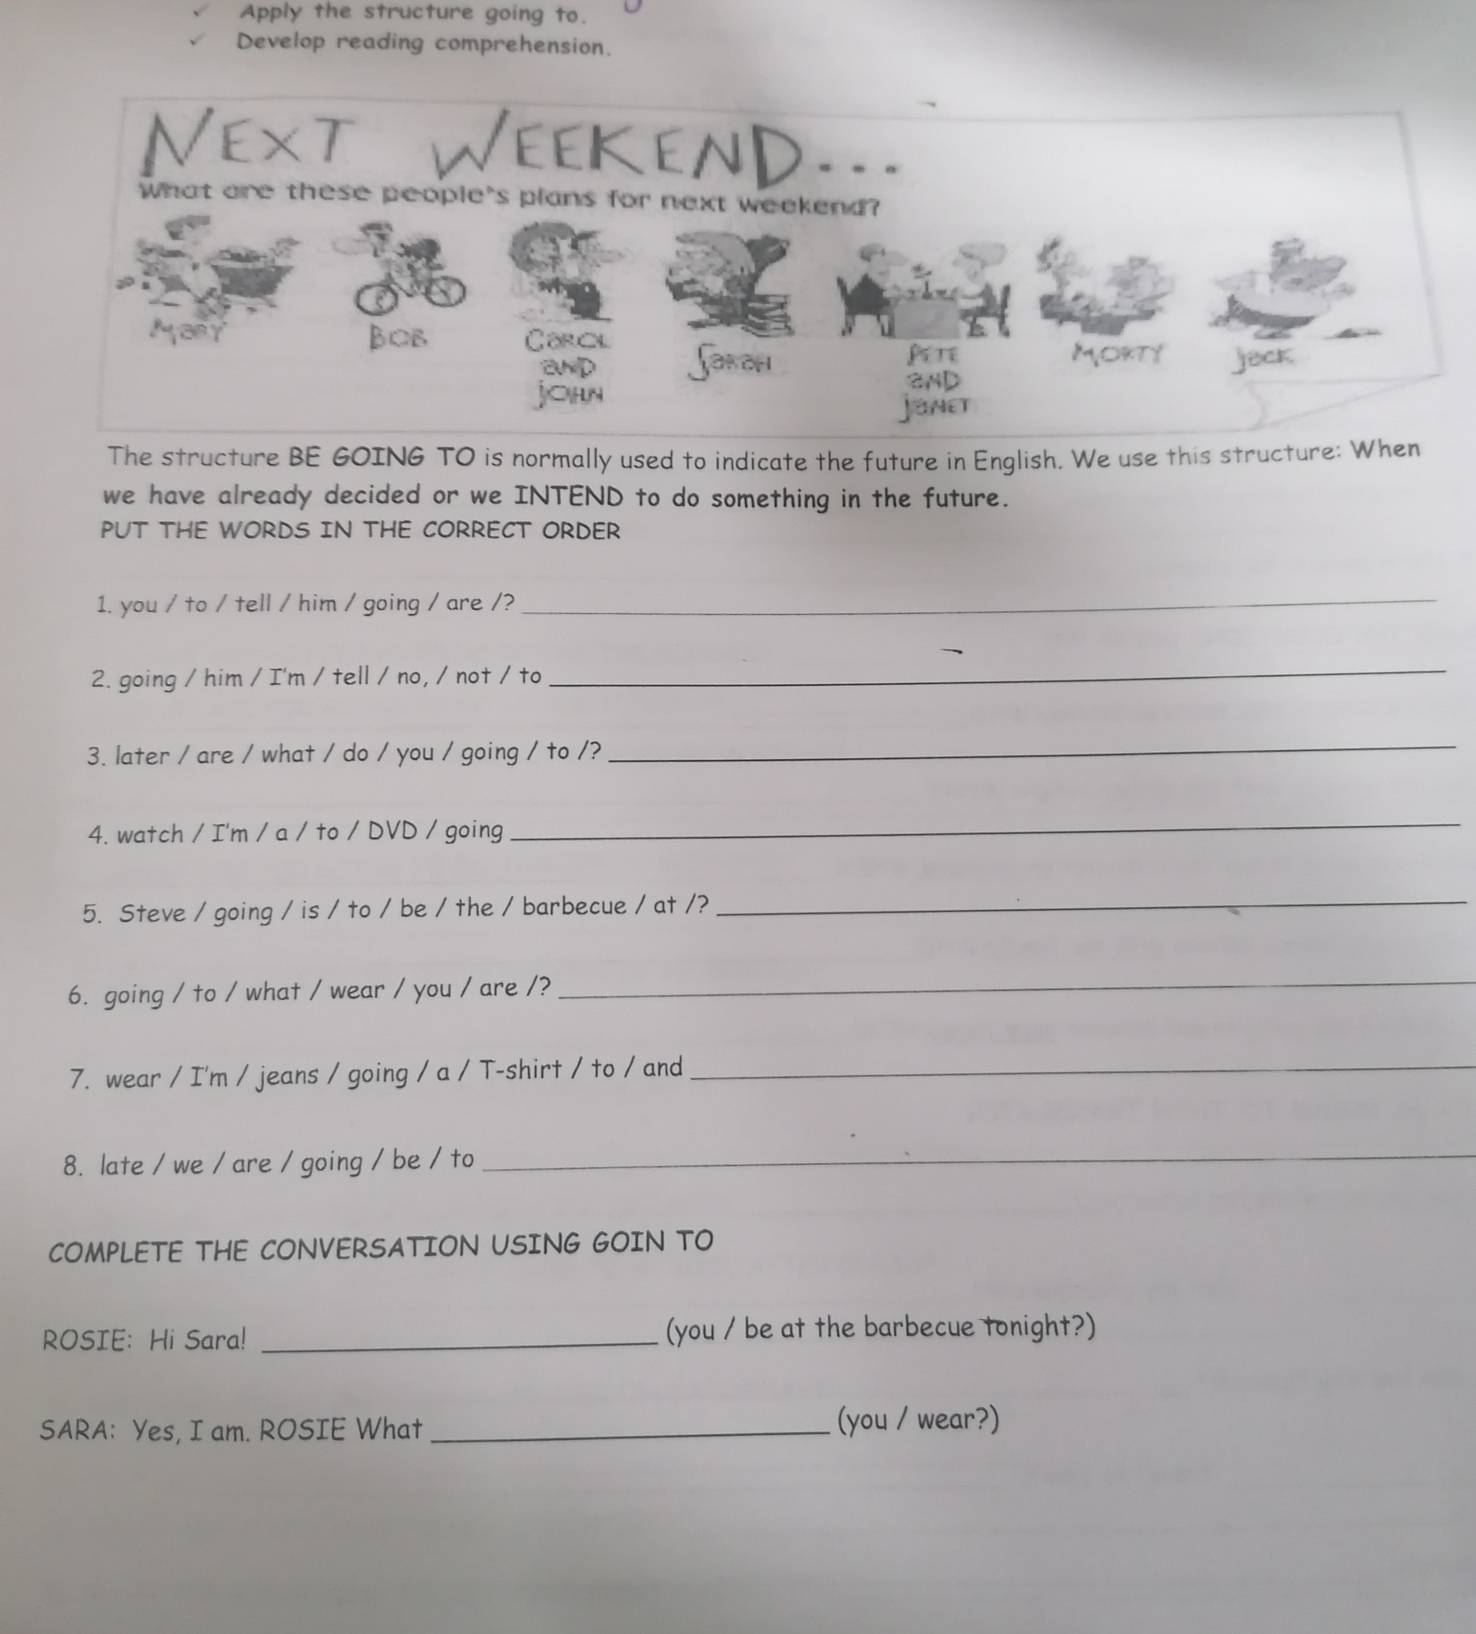 ✓ Apply the structure going to.
✓ Develop reading comprehension.
NEXT WEEKEND...
What are these people's plans for next weekend?
Mary
BOB
CAROL
AND
JOHN
SARAH
PETE
AND
JANET
MORTY
Jack
The structure BE GOING TO is normally used to indicate the future in English. We use this structure: When
we have already decided or we INTEND to do something in the future.
PUT THE WORDS IN THE CORRECT ORDER
1. you / to / tell / him / going / are /?
2. going / him / I'm / tell / no, / not / to
3. later / are / what / do / you / going / to /?
4. watch / I'm / a / to / DVD / going
5. Steve / going / is / to / be / the / barbecue / at /?
6. going / to / what / wear / you / are /?
7. wear / I'm / jeans / going / a / T-shirt / to / and
8. late / we / are / going / be / to
COMPLETE THE CONVERSATION USING GOIN TO
ROSIE: Hi Sara! (you / be at the barbecue tonight?)
SARA: Yes, I am. ROSIE What (you / wear?)